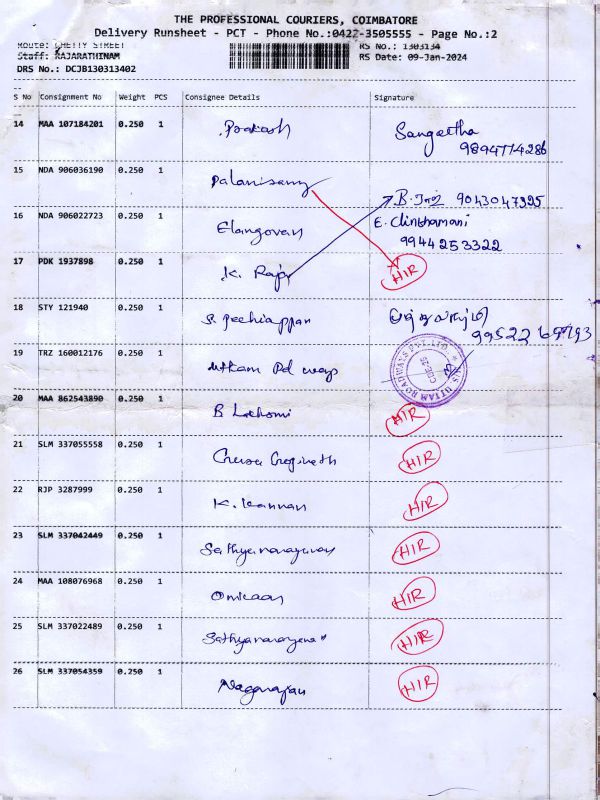 THE PROFESSIONAL COURIERS, COIMBATORE
Delivery Runsheet - PCT - Phone No.:0422-3505555 - Page No.:2
Route: CHETTY STREET RS No.: 1303134
Staff: RAJARATHINAM RS Date: 09-Jan-2024
DRS No.: DCJB130313402
S No Consignment No Weight PCS Consignee Details Signature
14 MAA 107184201 0.250 1 Prakash Sangeetha
9894774286
15 NDA 906036190 0.250 1 Palanisamy
B. 9043047325
16 NDA 906022723 0.250 1 Elangovan E. Chinthamani
9944253322
17 PDK 1937898 0.250 1 K. Raja HIR
18 STY 121940 0.250 1 S. Pechiappan
19 TRZ 160012176 0.250 1 Uttam Rd ways UTTAM ROADWAYS PVT. LTD.
20 MAA 862543890 0.250 1 B HIR
21 SLM 337055558 0.250 1 HIR
22 RJP 3287999 0.250 1 K. Kannan HIR
23 SLM 337042449 0.250 1 Sathyanarayanan HIR
24 MAA 108076968 0.250 1 HIR
25 SLM 337022489 0.250 1 Sathyanarayana HIR
26 SLM 337054359 0.250 1 Nagarajan HIR